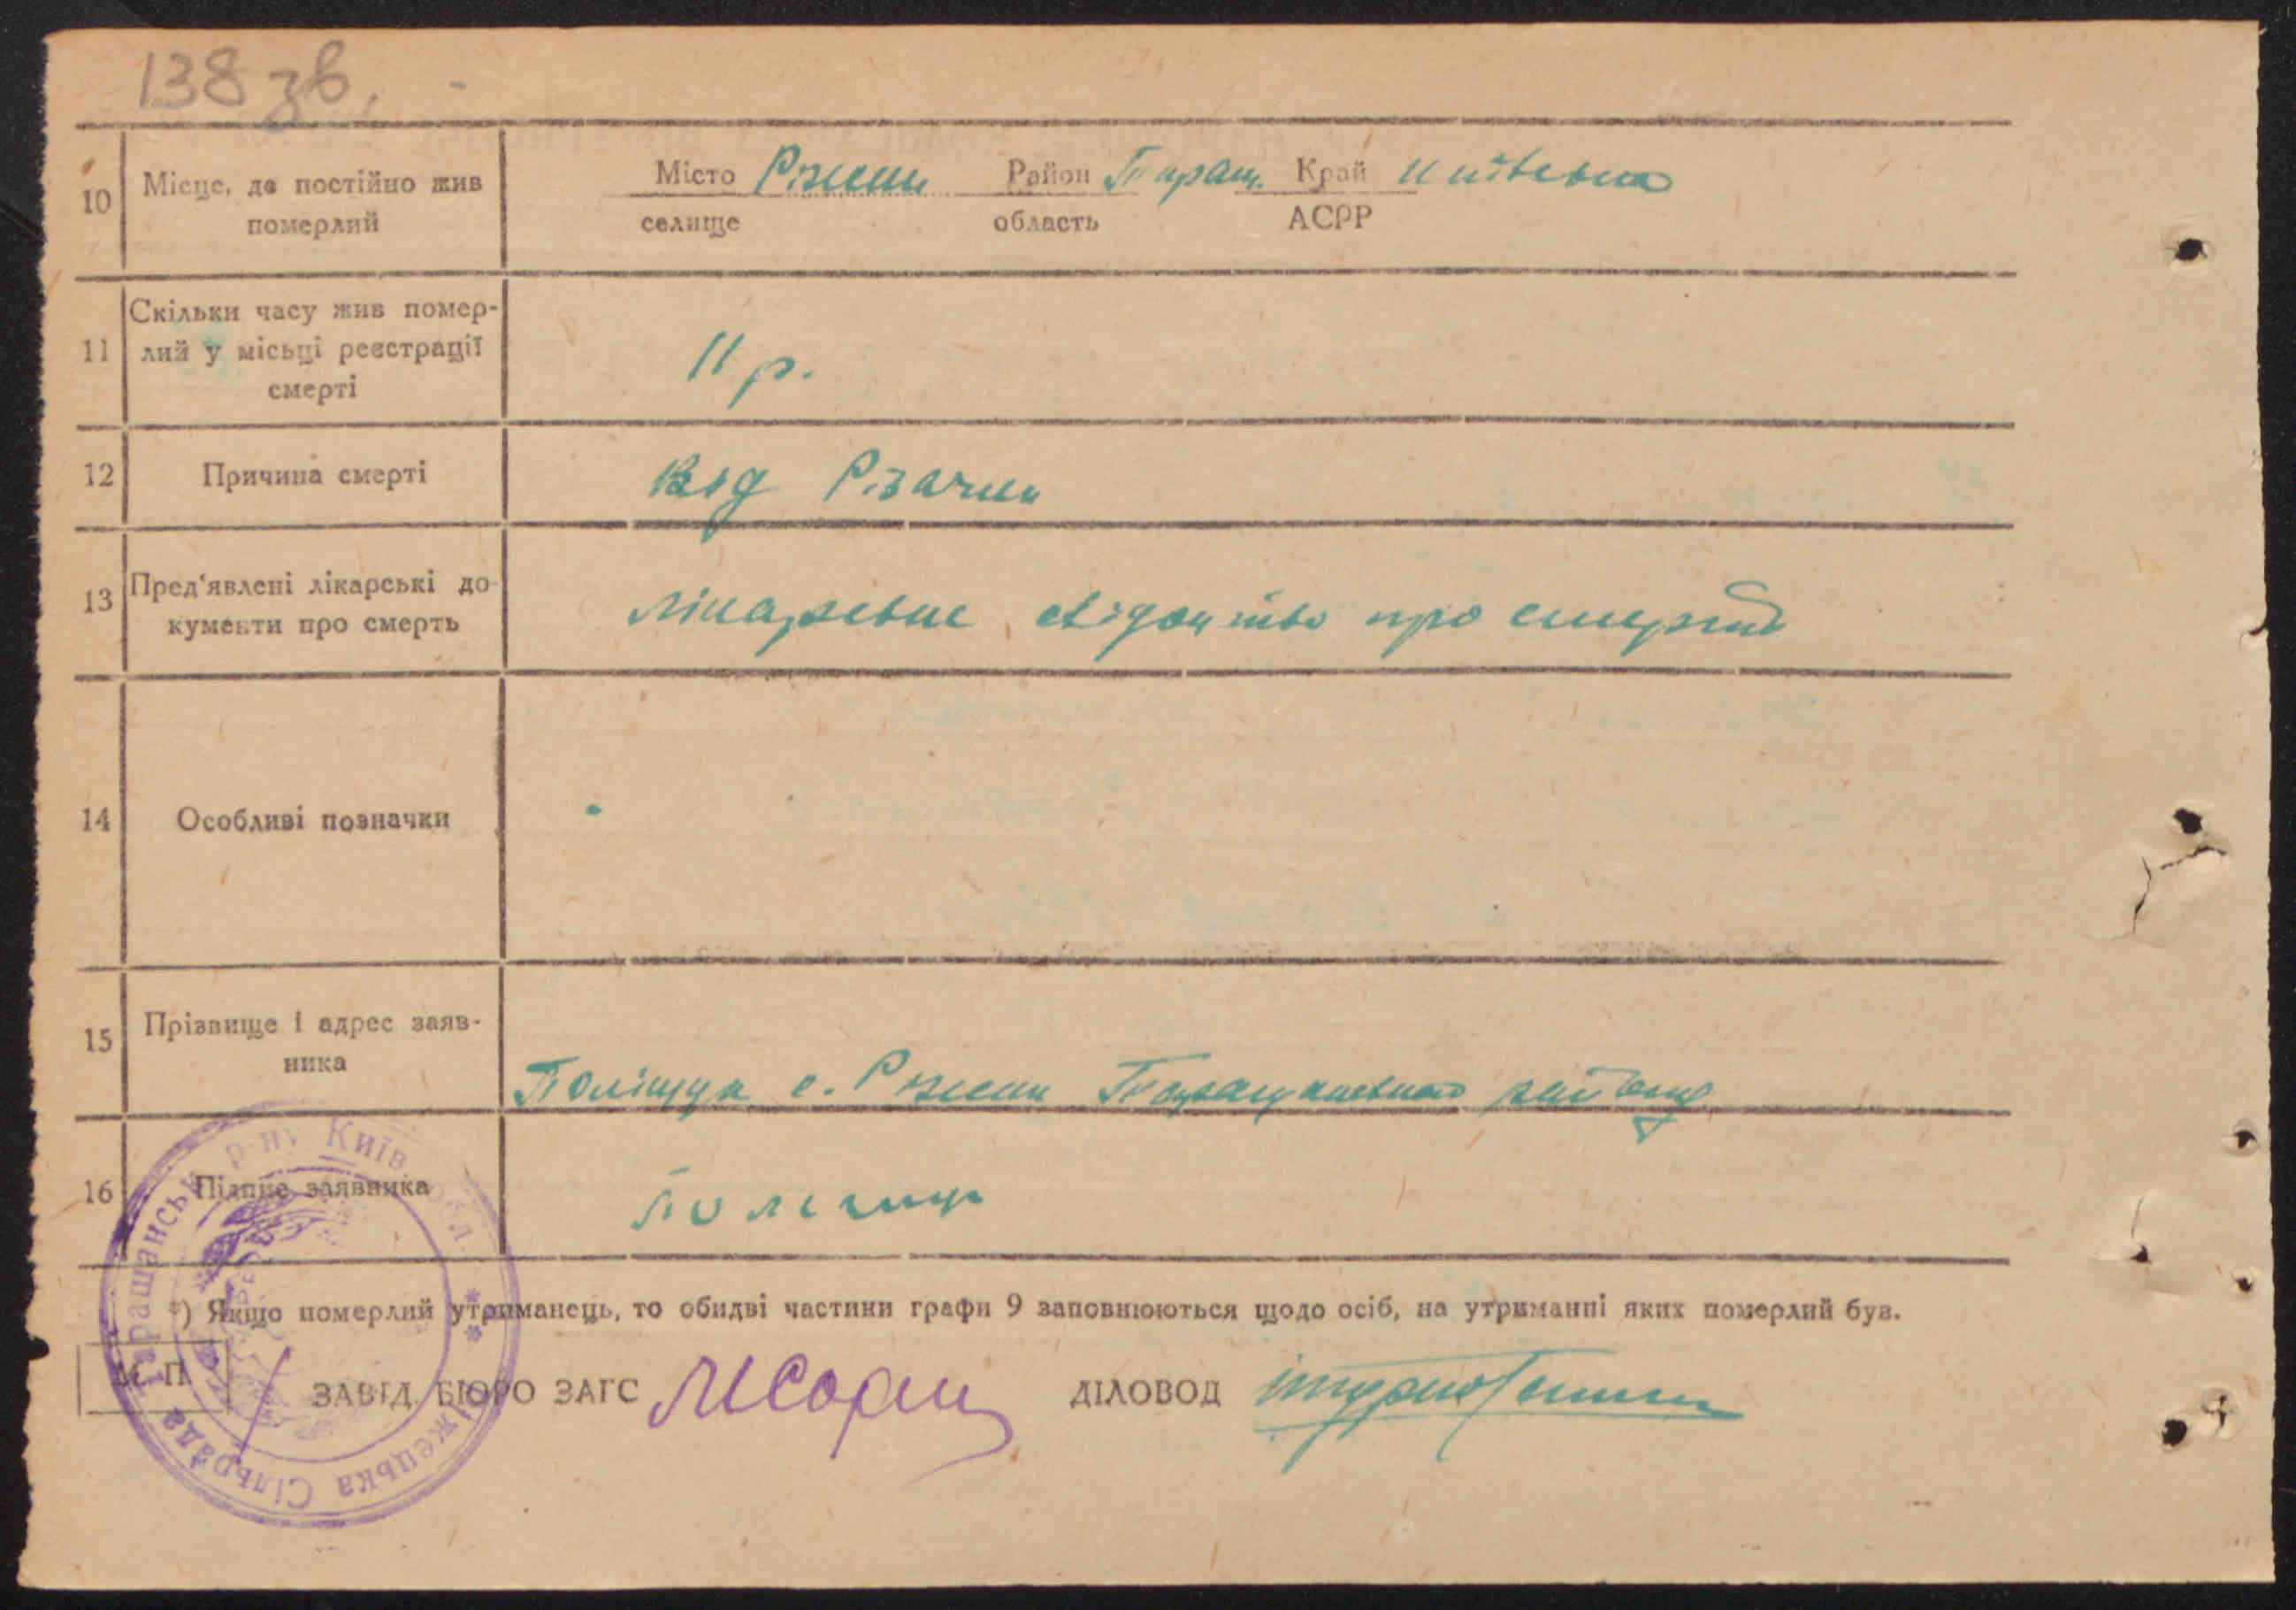 138 зв.
10 Місце, де постійно жив померлий
Місто Ріжки Район Тараш. Край Київська
селище область АСРР
11 Скільки часу жив помер-
лий у місьці реєстрації
смерті
11 р.
12 Причина смерті
Від Різачки
13 Пред'явлені лікарські до-
кументи про смерть
лікарське свідоцтво про смерть
14 Особливі позначки
15 Прізвище і адрес заяв-
ника
Поліщук с. Ріжки Таращанського району
16 Підпис заявника
Поліщук
*) Якщо померлий утриманець, то обидві частини графи 9 заповнюються щодо осіб, на утриманні яких померлий був.
М П
ЗАВІД. БЮРО ЗАГС
ДІЛОВОД
Таращанськ р-ну Київ обл.
Ріжецька Сільрада